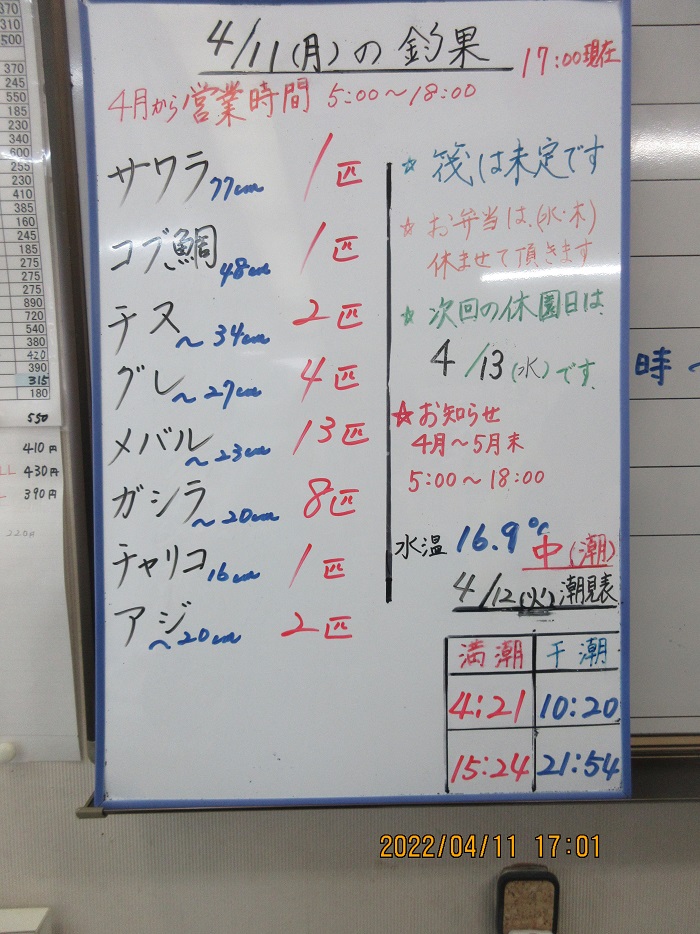 4/11(月)の釣果
17:00現在
4月から営業時間 5:00～18:00
サワラ 77cm 1匹
コブ鯛 48cm 1匹
チヌ ～34cm 2匹
グレ ～27cm 4匹
メバル ～23cm 13匹
ガシラ ～20cm 8匹
チャリコ 16cm 1匹
アジ ～20cm 2匹
☆ 筏は未定です
☆ お弁当は、(水・木)
休ませて頂きます
☆ 次回の休園日は
4/13(水)です。
☆お知らせ
4月～5月末
5:00～18:00
水温 16.9℃
中(潮)
4/12(火)潮見表
満潮 干潮
4:21 10:20
15:24 21:54
時～
370
245
550
185
230
340
600
255
230
410
385
160
245
185
275
275
890
720
540
380
420
390
315
180
550
410円
430円
390円
2022/04/11 17:01